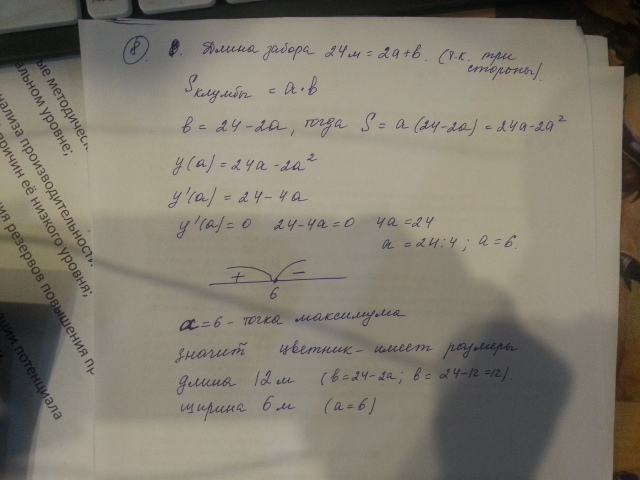 8. Длина забора 24 м = 2a+b. (т.к. три
стороны).
S клумбы = a·b
b = 24-2a, тогда S = a(24-2a) = 24a-2a²
y(a) = 24a-2a²
y'(a) = 24-4a
y'(a) = 0 24-4a=0 4a=24
a = 24:4; a=6.
+ -
6
a=6 - точка максимума
значит цветник - имеет размеры
длина 12 м (b=24-2a; b=24-12=12).
ширина 6 м (a=6)
ные методическ
альном уровне;
нализа производительности
ричин её низкого уровня;
ия резервов повышения пр
ации потенциала